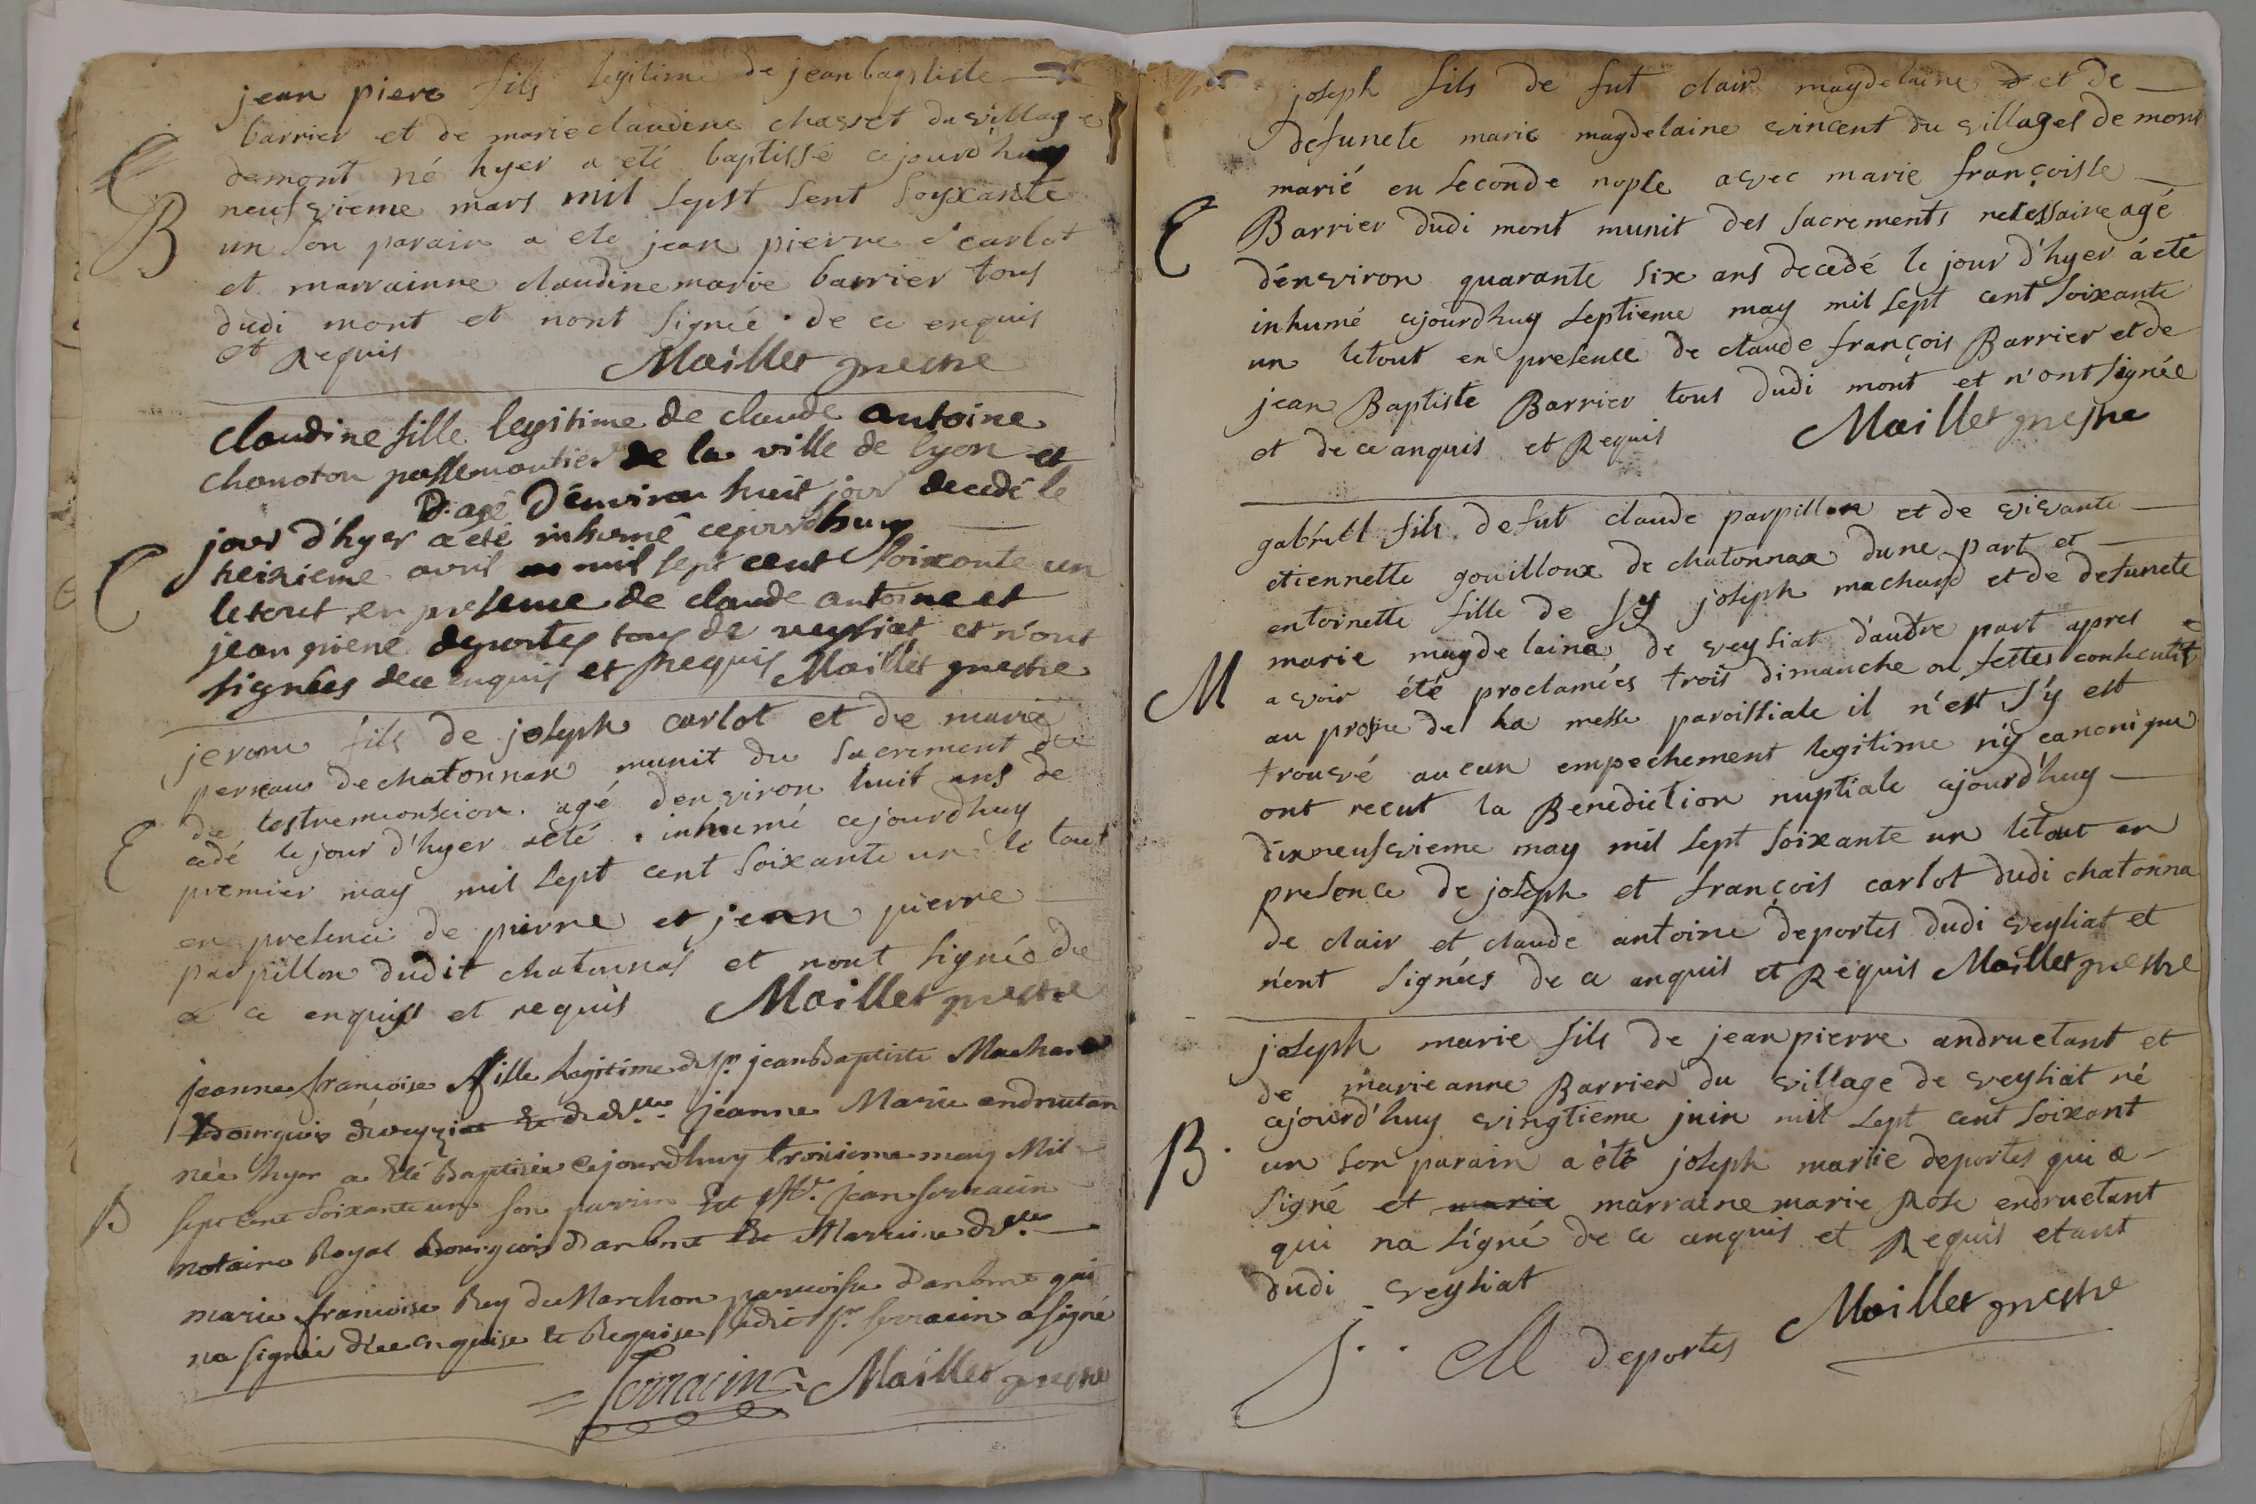 jean piere fils legitime de jean baptiste
barrier et de marie claudine chasset du village
demont né hyer a eté baptissé cejourdhuy
B neufvieme mars mil sepst sent soyxante
un son parain a ete jean pierre carlot
et marrainne claudine marie barrier tous
dudi mont et nont signée de ce enquis
et Requis Maillet prestre
claudine fille legitime de claude antoine
chanoton passemantier de la ville de lyon et
agé d'environ huit jour decedé le
jour d'hyer a eté inhumé cejourdhuy
avril mil sept cent soixante un
letout en presence de claude antoine et
jean piere deportes tous de veysiat et n'ont
signées dece enquis et Requis Maillet prestre
jerome fils de joseph carlot et de marie
de chatonnax munit du sacrement de
agé denviron huit ans de
cedé le jour d'hyer aeté inhumé cejourdhuy
premier may mil sept cent soixante un le tout
en presence de pierre et jean pierre
parpillon dudit chatonnas et nont signée de
ce enquis et requis Maillet prestre
jeanne francoise fille legitime de sr. jean Baptiste Machard
Bourgeois de veyziat & de dlle. jeanne Marie andruetan
née hyer a été Baptisée cejourdhuy troisieme may Mil
B sept cent soixante un son parrin Est Mr. jean sorracin
notaire Royal Bourgeois d'arbent Et Marraine dlle.
marie francoise Rey du Marchon parroisse d'arbent qui
na signée d'ce enquise & Requise ledit sr. sorracin a signé
Sorracin Maillet prestre
joseph fils de fut clair magdelaine et de
defuncte marie magdelaine vincent du villages de mont
marié en seconde nopse avec marie françoisse
Barrier dudi mont munit des sacrements nesessaire agé
dénviron quarante six ans decedé le jour d'hyer á eté
inhumé cejourdhuy septieme may mil sept cent soixante
un letout en presence de claude françois Barrier et de
jean Baptiste Barrier tous dudi mont et n'ont signée
et de ce anquis et Requis Maillet prestre
gabriel fils defut claude parpillon et de vivante
etiennette gouilloux de chatonnax dune part et
entoinette fille de sr joseph machard et de defuncte
marie magdelaine de veysiat d'autre part apres
M avoir été proclamées trois dimanche ou festes consecutif
au prosne de la messe paroissiale il n'est s'y est
trouvé aucun empechement legitime n'y canonique
ont recut la Benediction nuptiale cejourd'huy
dixneufvieme may mil sept soixante un letout en
presence de joseph et françois carlot dudi chatonna
de clair et claude antoine deportes dudi veysiat et
n'ont signées de ce anquis et Requis Maillet prestre
joseph marie fils de jean pierre andruetant et
de marie anne Barrier du village de veysiat né
cejourd'huy vingtieme juin mil sept cent soixant
B. un son parain a été joseph marie deportes qui a
signé et marie marraine marie Rose endruetant
qui na signé de ce enquis et Requis etant
dudi veysiat
J.. M deportes Maillet prestre